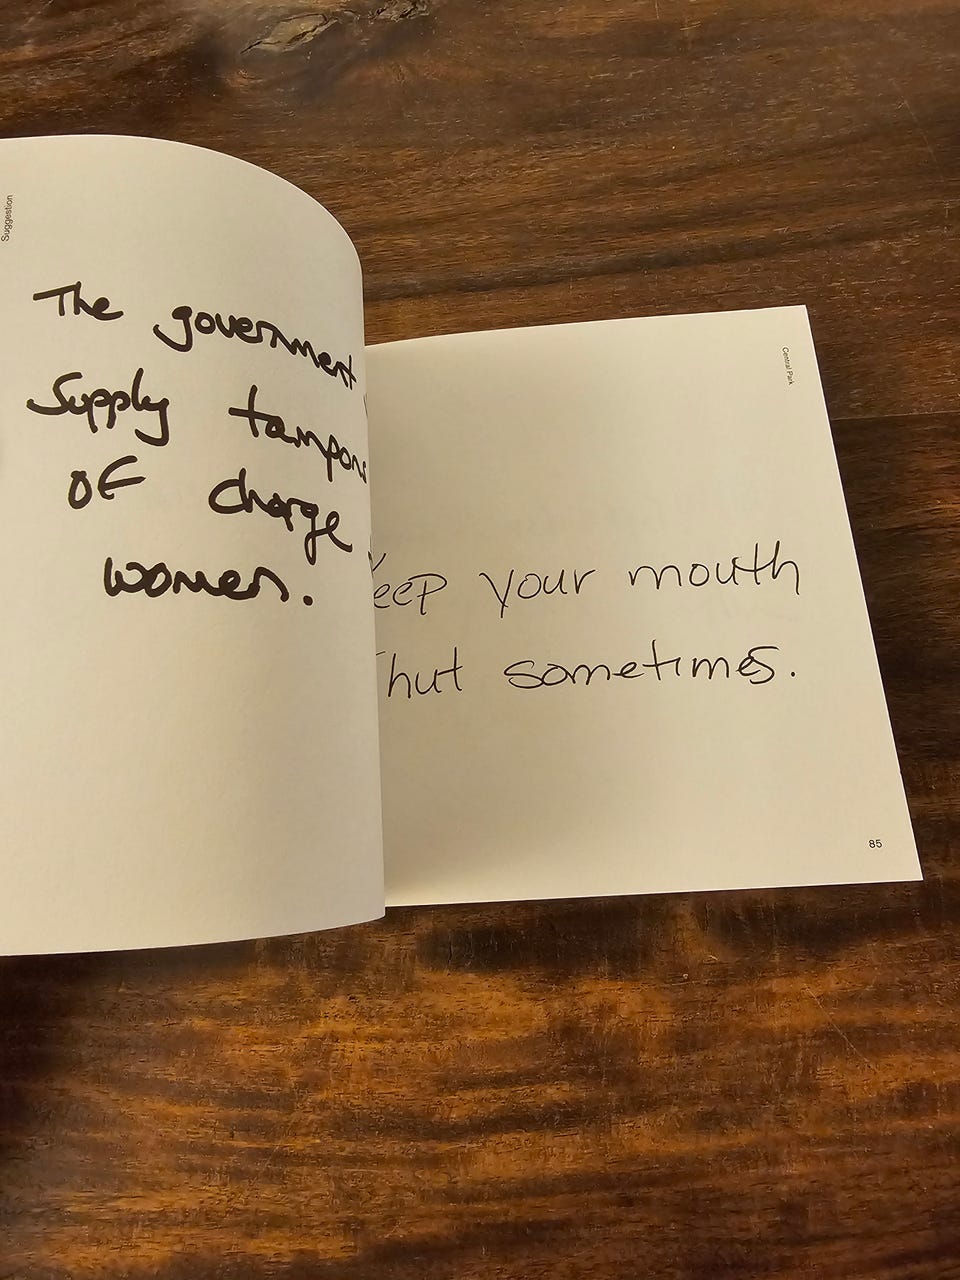 Suggestion
The government
supply tampons
of charge
women.
Central Park
Keep your mouth
shut sometimes.
85